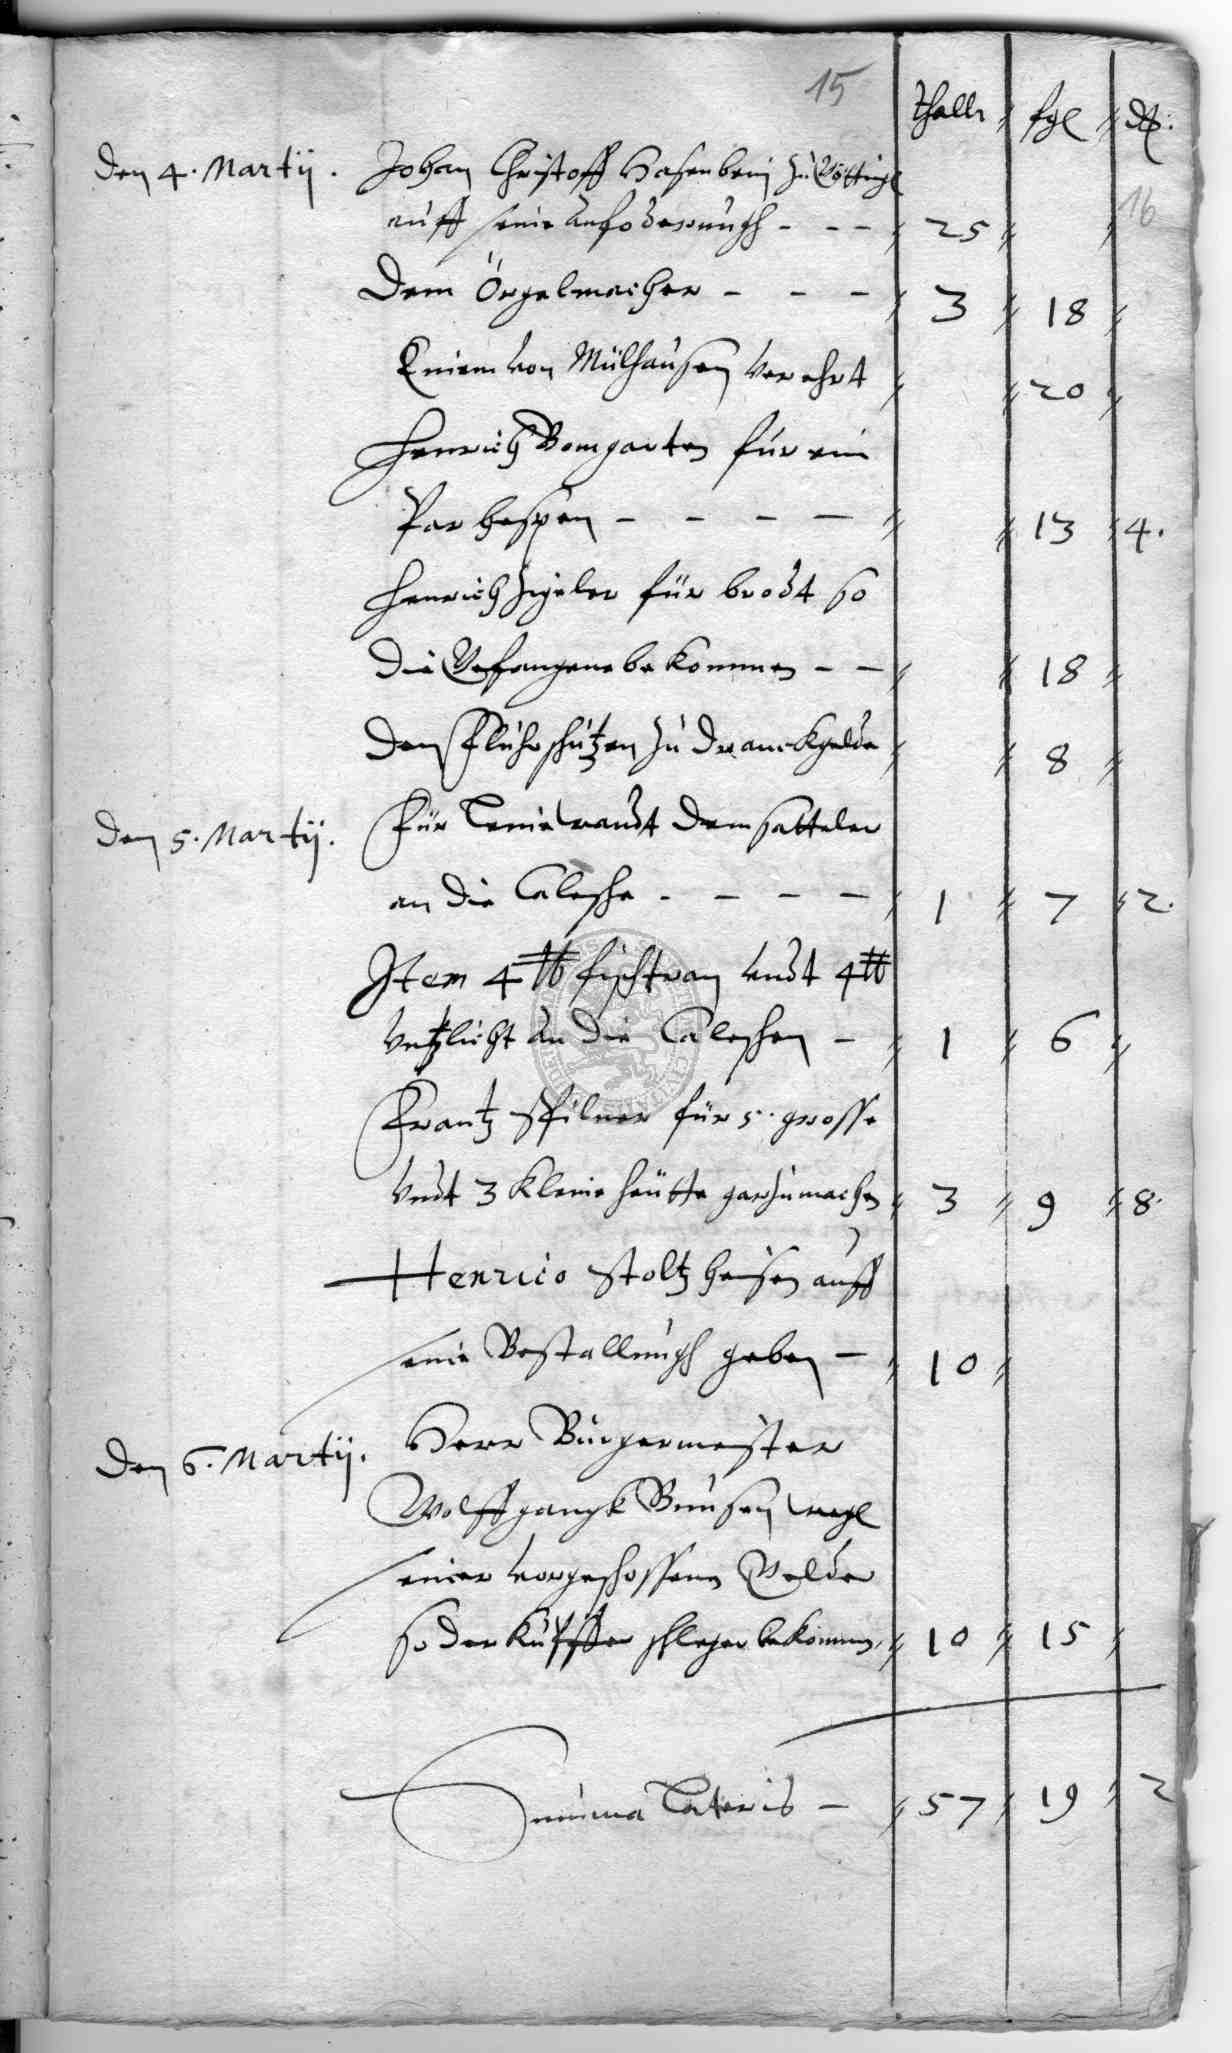 15
thallr fgl d
16
den 4. Martij. Johan Christoff Hasenbein zu Götting
auff seine anfoderungh - - - 25
Dem Örgelmacher - - - 3 18
Einem von Mülhausen verehrt 20
Henrich Bomgarten für ein
Par hespen - - - - 13 4.
Henrich Zigeler für brodt so
die Gefangene bekommen - - 18
den Fluhrschützen zu dranckgelde 8
den 5. Martij. Für Leinewandt dem satteler
an die Calesche - - - - 1 7 2.
Item 4 ℔ fischtran undt 4 ℔
an die Caleschen - 1 6
Frantz Spilner für 5. grosse
undt 3 kleine heütte garzumachen 3 9 8.
Henrico Stoltzheisen auff
seine Bestallungh geben - 10
den 6. Martij. Herr Bürgermeister
Wolffgangk Bunsen wegl
seiner vorgeschossenen Gelder
so der Kupffer schleger bekommen, 10 15
Summa Lateris - 57 19 2